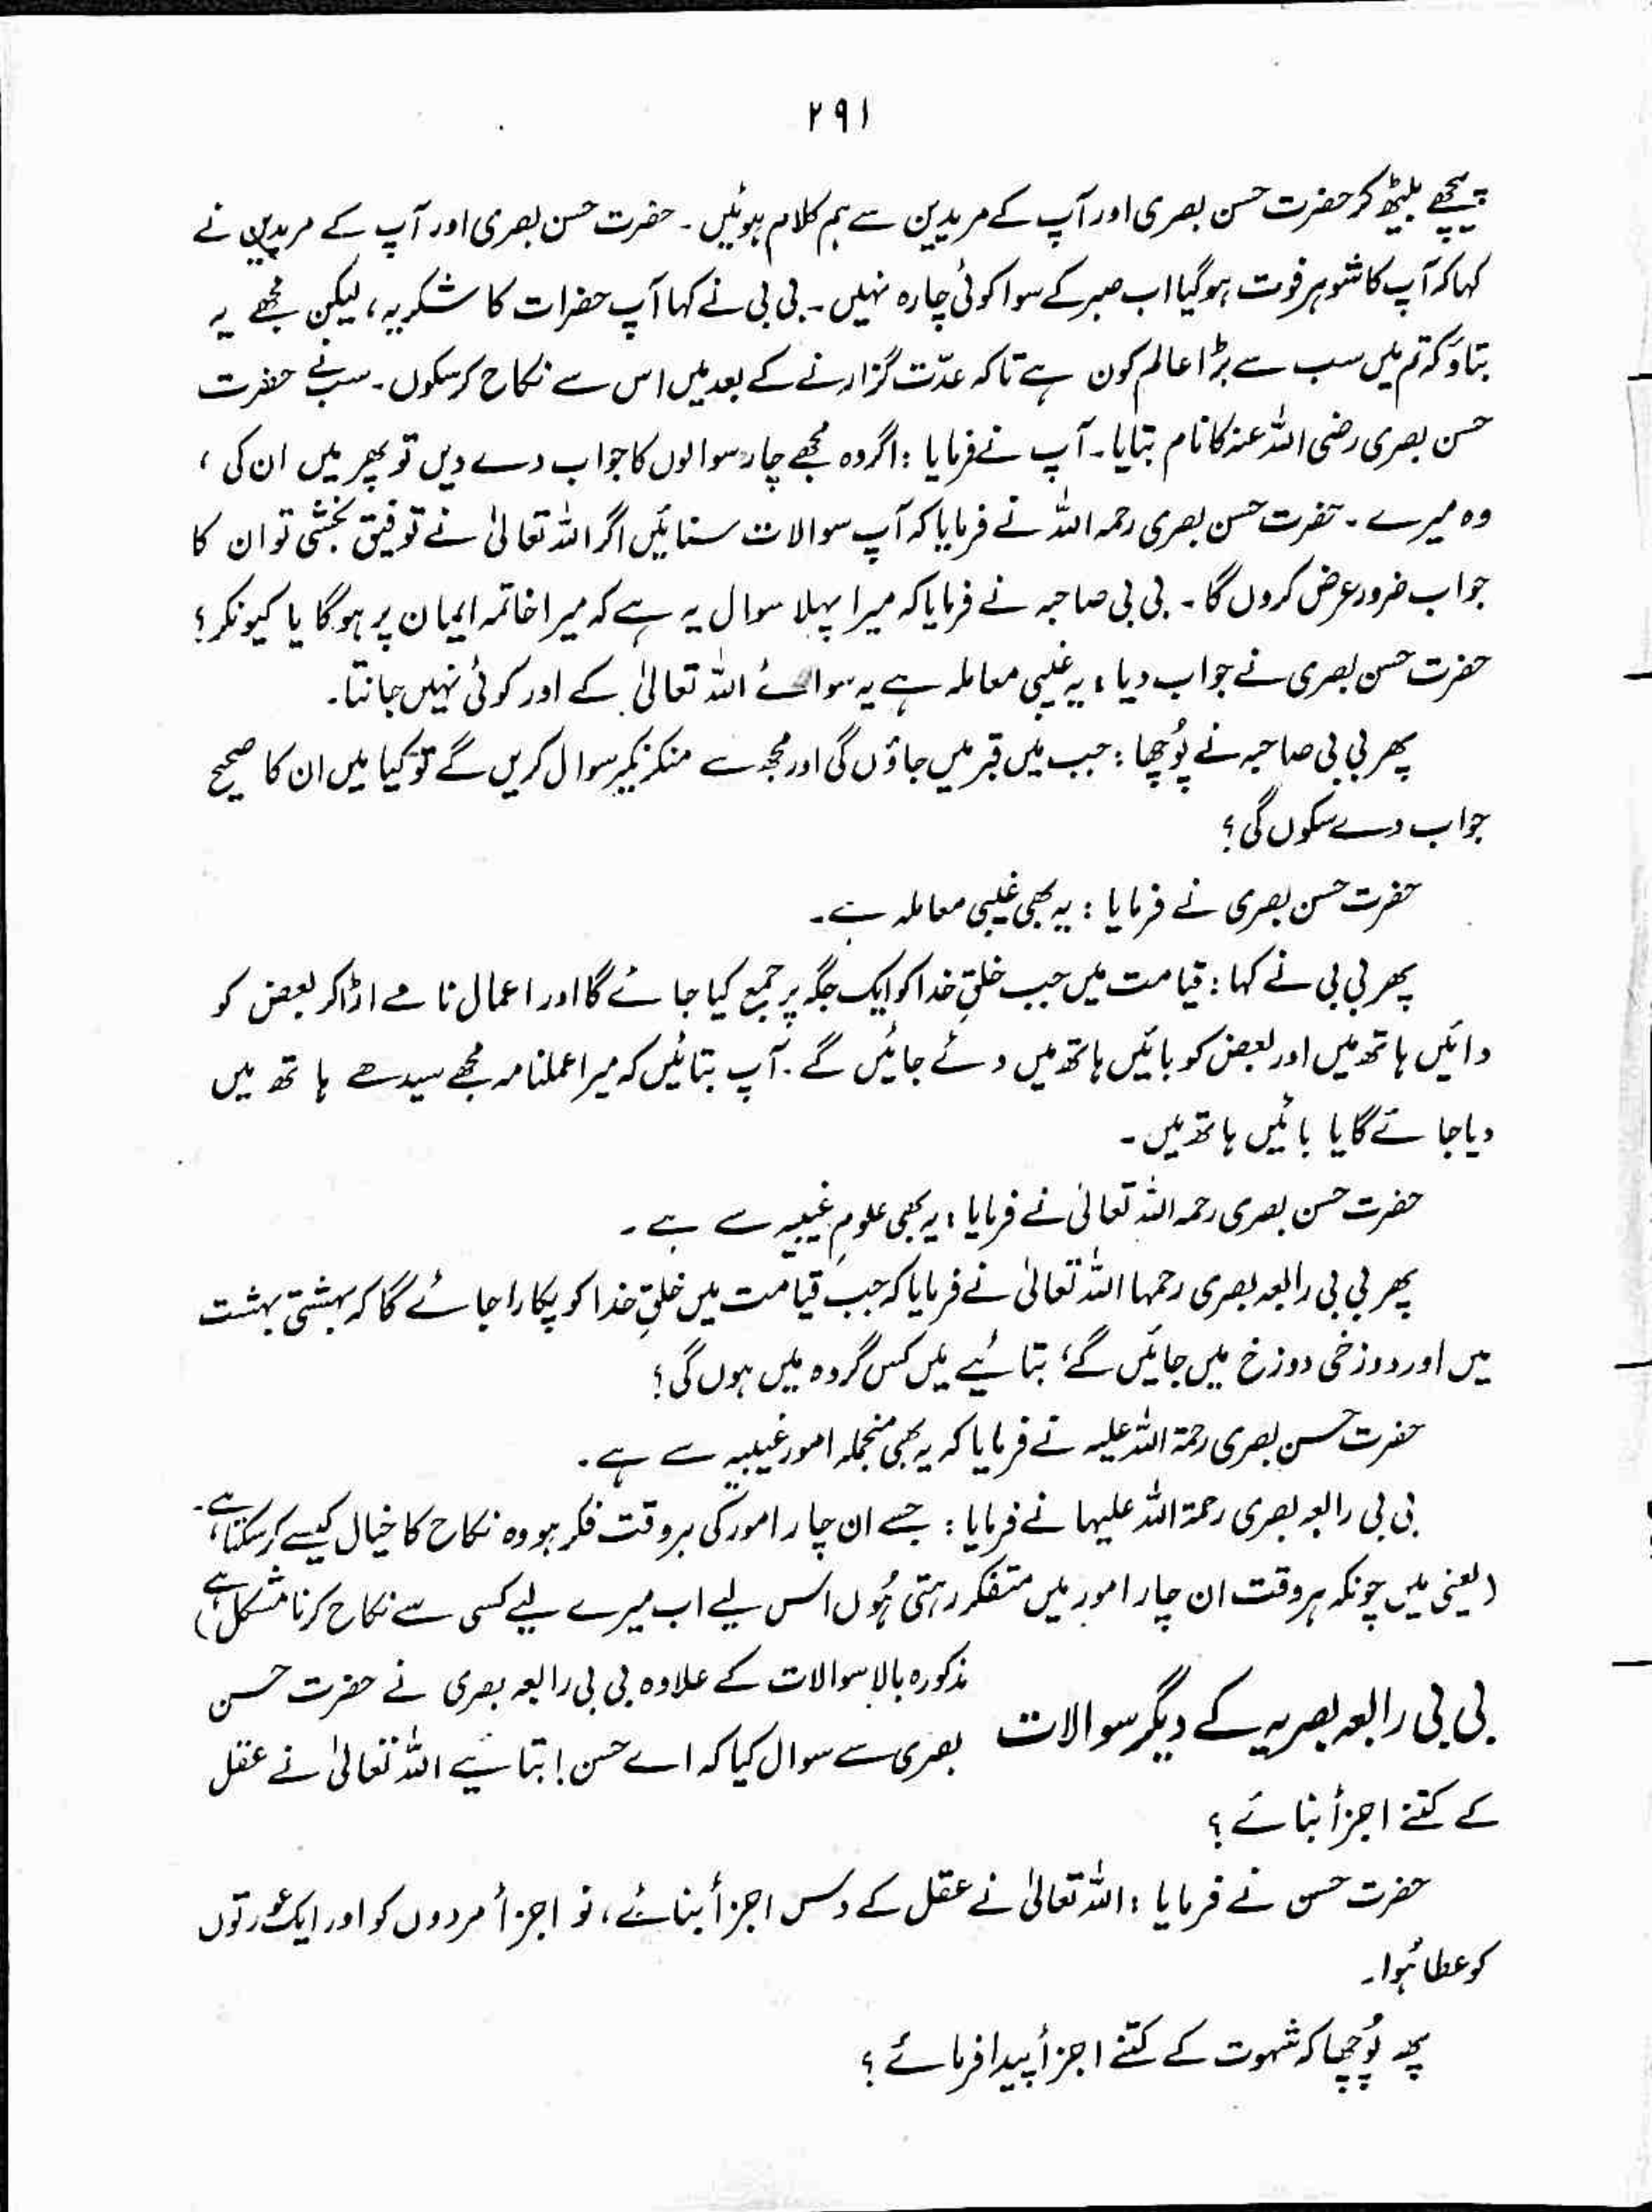 ۲۹۱
پیچھے بیٹھ کر حضرت حسن بصری اور آپ کے مریدین سے ہم کلام ہوئیں۔ حضرت حسن بصری اور آپ کے مریدین نے
کہا کہ آپ کا شوہر فوت ہوگیا اب صبر کے سوا کوئی چارہ نہیں۔ بی بی نے کہا آپ حضرات کا شکریہ، لیکن مجھے یہ
بتاؤ کہ تم میں سب سے بڑا عالم کون ہے تاکہ عدّت گزارنے کے بعد میں اس سے نکاح کرسکوں۔ سب نے حضرت
حسن بصری رضی اللہ عنہ کا نام بتایا۔ آپ نے فرمایا : اگر وہ مجھے چار سوالوں کا جواب دے دیں تو پھر میں ان کی ،
وہ میرے ۔ حضرت حسن بصری رحمہ اللہ نے فرمایا کہ آپ سوالات سنائیں اگر اللہ تعالیٰ نے توفیق بخشی تو ان کا
جواب ضرور عرض کروں گا ۔ بی بی صاحبہ نے فرمایا کہ میرا پہلا سوال یہ ہے کہ میرا خاتمہ ایمان پر ہوگا یا کیونکر؟
حضرت حسن بصری نے جواب دیا : یہ غیبی معاملہ ہے یہ سوائے اللہ تعالیٰ کے اور کوئی نہیں جانتا۔
پھر بی بی صاحبہ نے پُوچھا : جب میں قبر میں جاؤں گی اور مجھ سے منکر نکیر سوال کریں گے تو کیا میں ان کا صحیح
جواب دے سکوں گی؟
حضرت حسن بصری نے فرمایا : یہ بھی غیبی معاملہ ہے۔
پھر بی بی نے کہا : قیامت میں جب خلقِ خدا کو ایک جگہ پر جمع کیا جائے گا اور اعمال نامے اڑا کر بعض کو
دائیں ہاتھ میں اور بعض کو بائیں ہاتھ میں دئے جائیں گے۔ آپ بتائیں کہ میرا عملنامہ مجھے سیدھے ہاتھ میں
دیا جائے گا یا بائیں ہاتھ میں۔
حضرت حسن بصری رحمہ اللہ تعالیٰ نے فرمایا : یہ بھی علومِ غیبیہ سے ہے۔
پھر بی بی رابعہ بصری رحمہا اللہ تعالیٰ نے فرمایا کہ جب قیامت میں خلقِ خدا کو پکارا جائے گا کہ بہشتی بہشت
میں اور دوزخی دوزخ میں جائیں گے، بتائیے میں کس گروہ میں ہوں گی؟
حضرت حسن بصری رحمۃ اللہ علیہ نے فرمایا کہ یہ بھی منجملہ امور غیبیہ سے ہے۔
بی بی رابعہ بصری رحمۃ اللہ علیہا نے فرمایا : جسے ان چار امور کی ہر وقت فکر ہو وہ نکاح کا خیال کیسے کرسکتا ہے۔
(یعنی میں چونکہ ہر وقت ان چار امور میں متفکر رہتی ہُوں اس لیے اب میرے لیے کسی سے نکاح کرنا مشکل ہے)
بی بی رابعہ بصریہ کے دیگر سوالات
مذکورہ بالا سوالات کے علاوہ بی بی رابعہ بصری نے حضرت حسن
بصری سے سوال کیا کہ اے حسن! بتائیے اللہ تعالیٰ نے عقل
کے کتنے اجزأ بنائے ؟
حضرت حسن نے فرمایا : اللہ تعالیٰ نے عقل کے دس اجزأ بنائے، نو اجزأ مردوں کو اور ایک عورتوں
کو عطا ہُوا۔
پھر پُوچھا کہ شہوت کے کتنے اجزأ پیدا فرمائے ؟